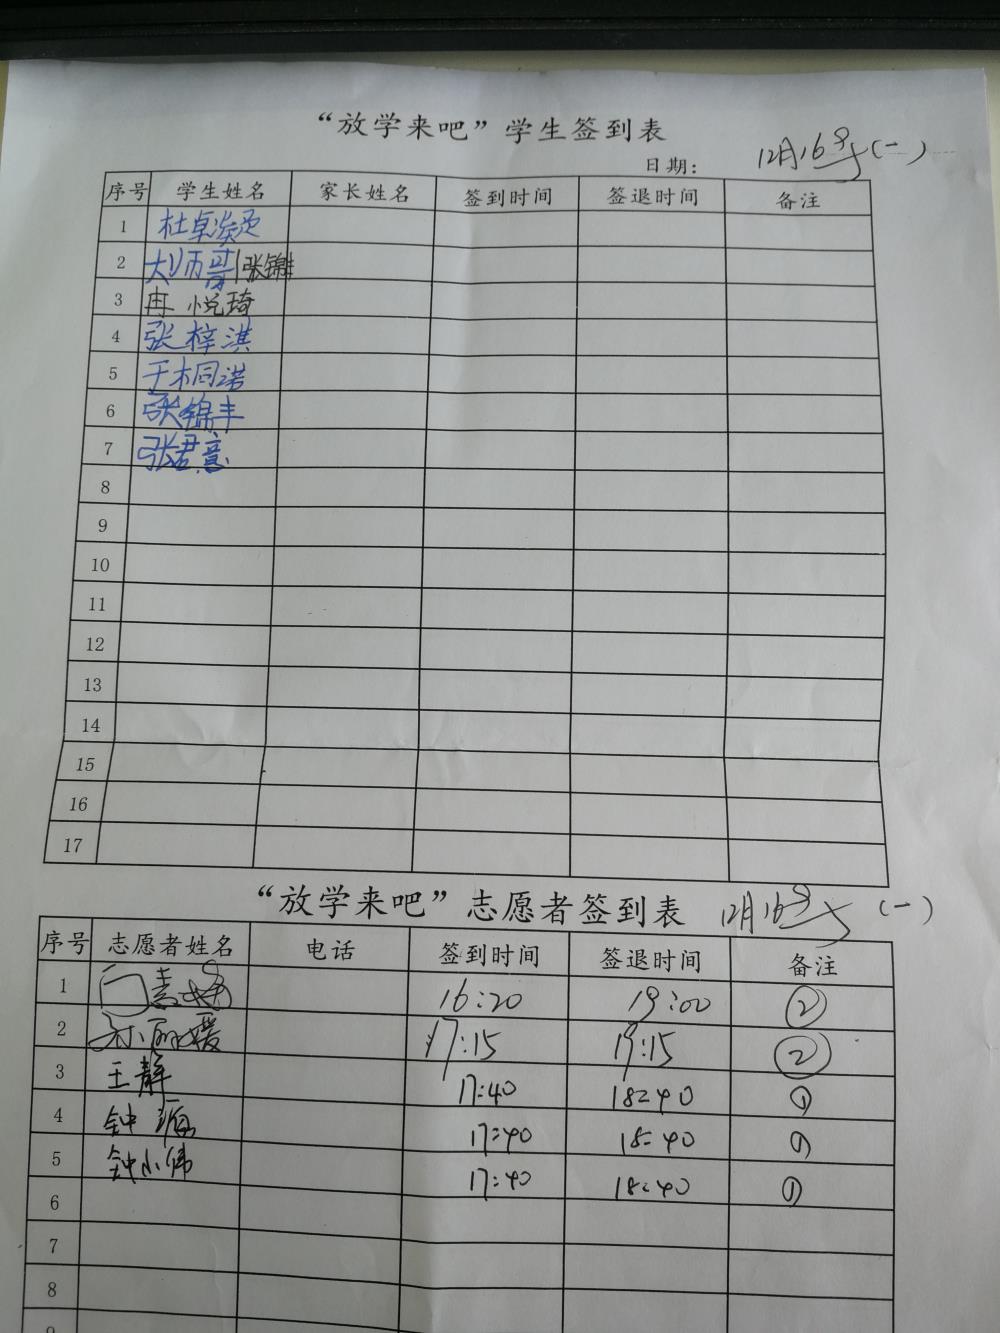 “放学来吧”学生签到表
日期： 12月16号（一）
序号 学生姓名 家长姓名 签到时间 签退时间 备注
1 杜卓
2 张锦丰
3 冉悦琦
4 张梓淇
5 于桐诺
6 张锦丰
7 张君意
8
9
10
11
12
13
14
15
16
17
“放学来吧”志愿者签到表 12月16号（一）
序号 志愿者姓名 电话 签到时间 签退时间 备注
1 16:20 19:00 ②
2 孙丽媛 17:15 19:15 ②
3 王静 17:40 18:40 ①
4 钟 17:40 18:40 ①
5 钟小伟 17:40 18:40 ①
6
7
8